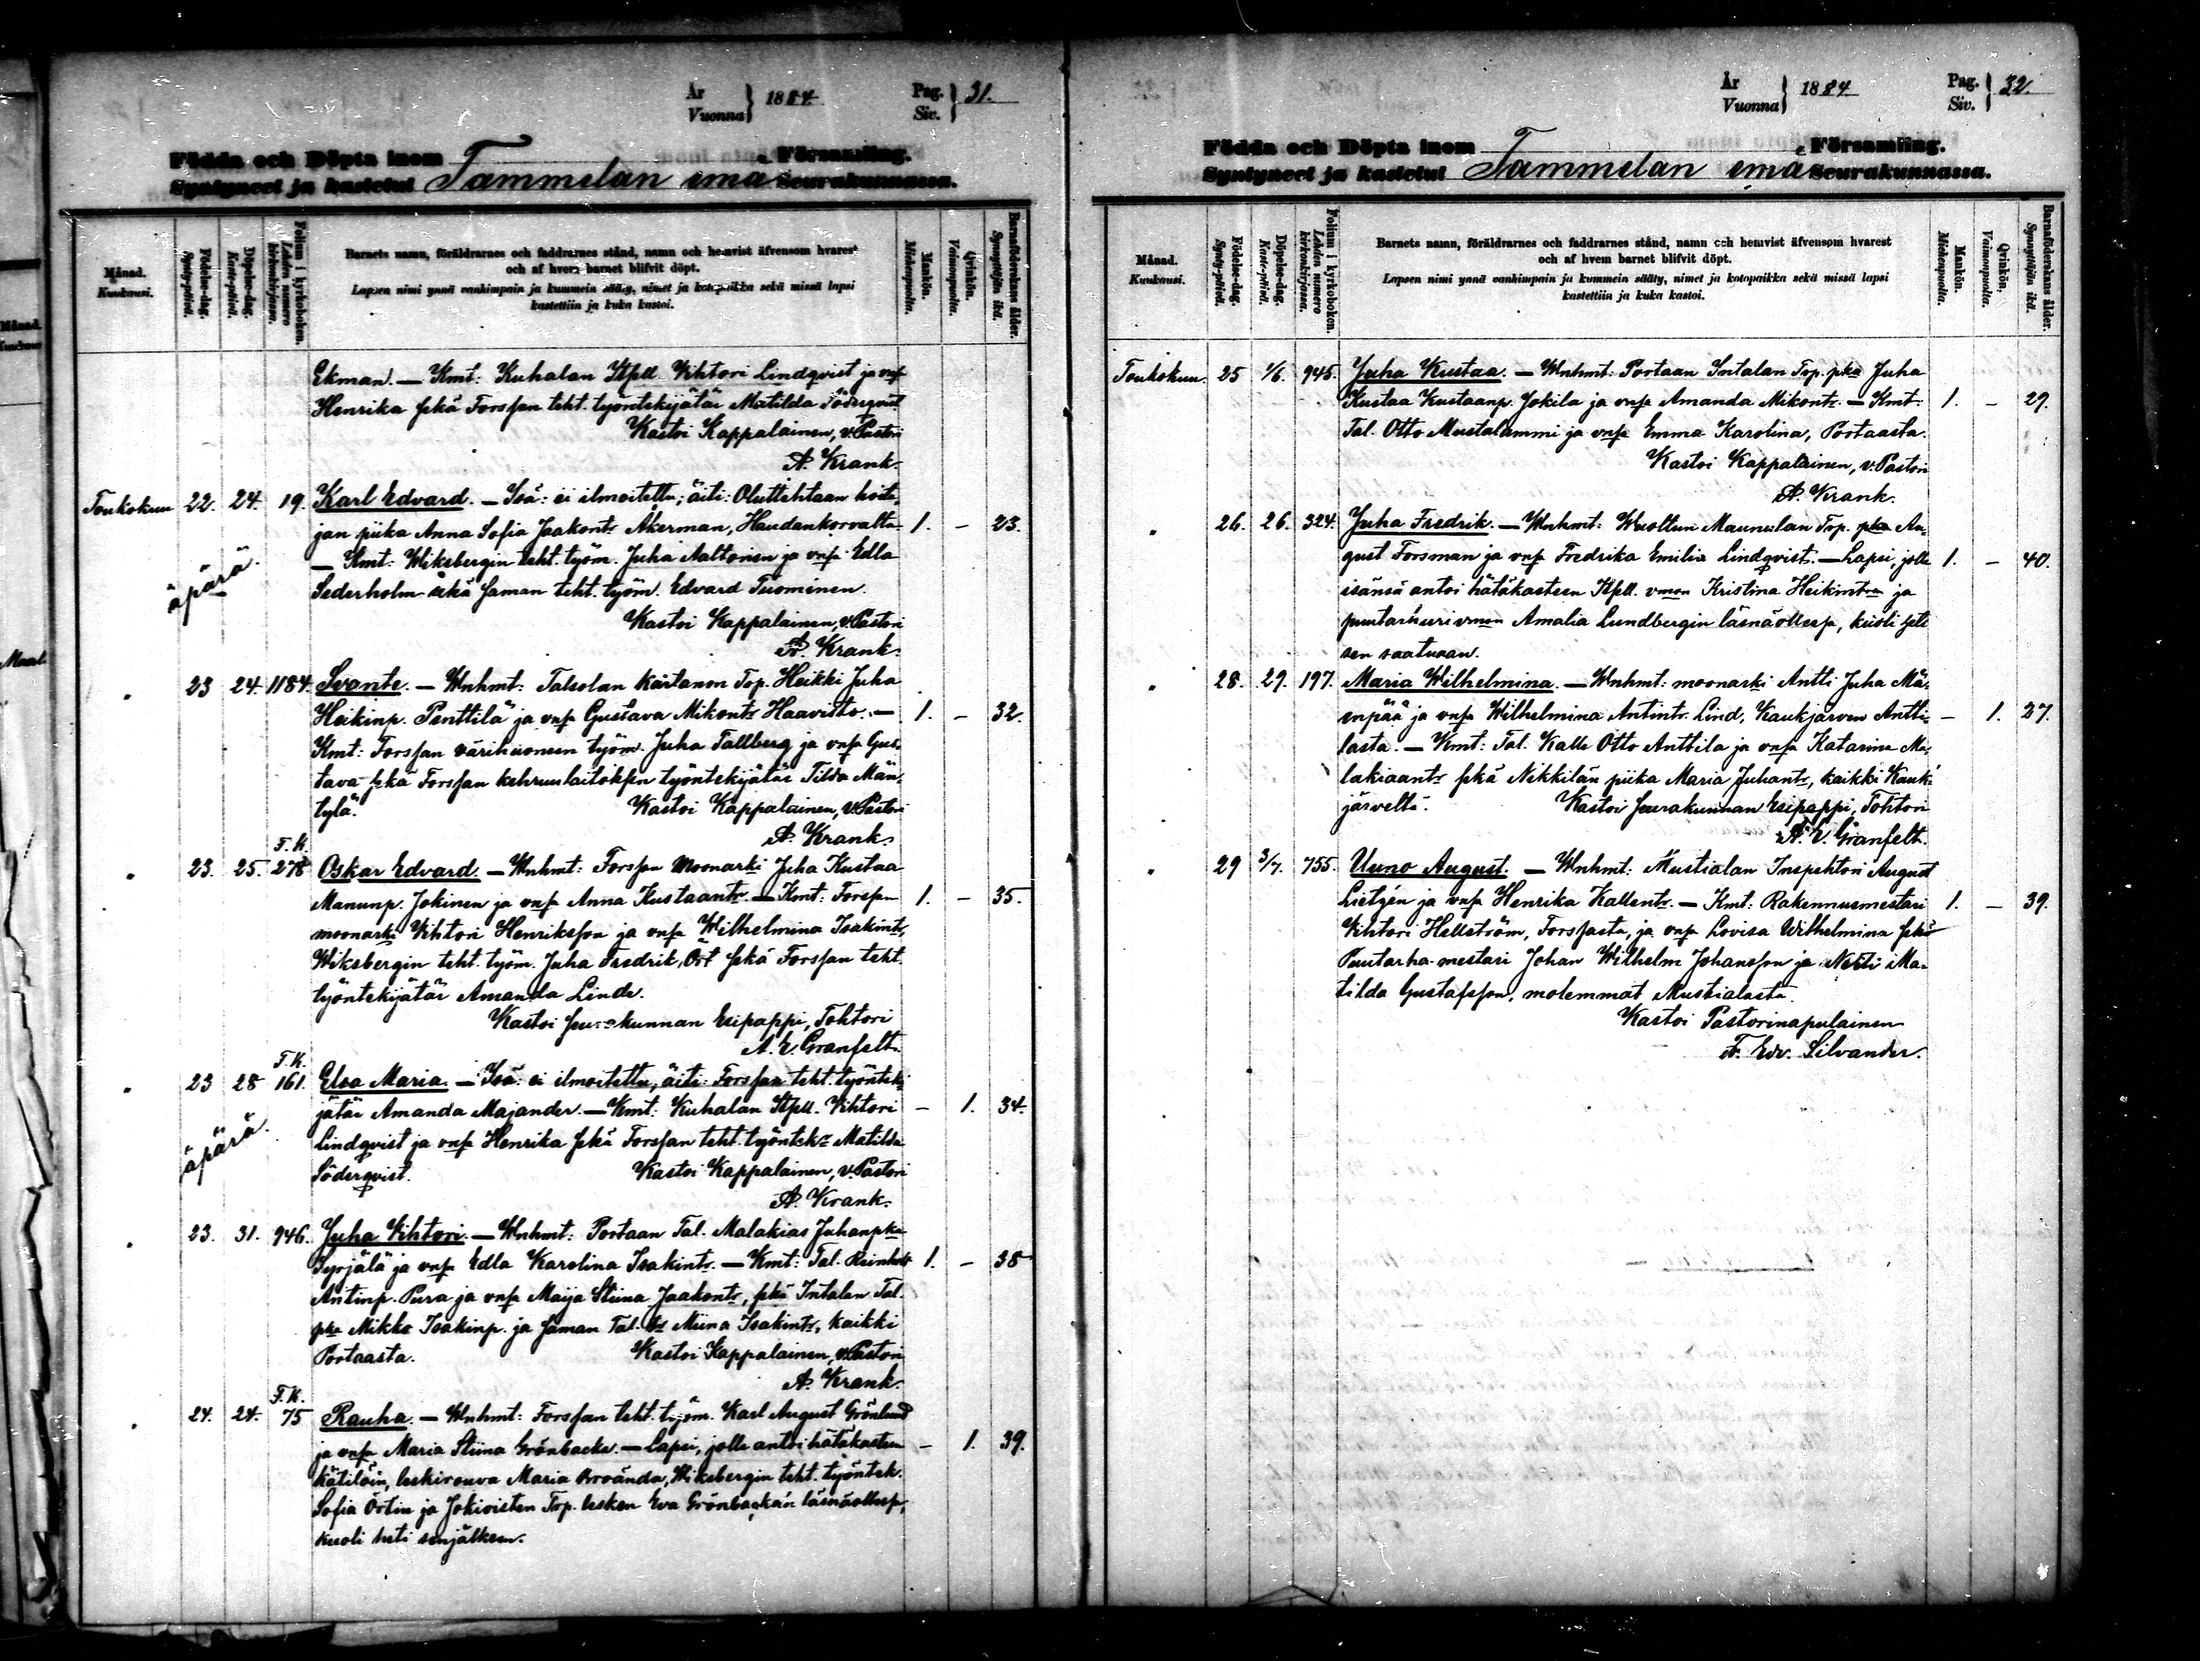 År
Vuonna } 1884. Pag. Siv. } 31.
Födda och Döpta inom Församling.
Syntyneet ja kastetut Tammelan emä Seurakunnassa.
Månad. Kuukausi.
Födelse-dag. Synty-päivä.
Döpelse-dag. Kaste-päivä.
Folium i kyrkoboken. Lehden numero kirkonkirjassa.
Barnets namn, föräldrarnes och faddrarnes stånd, namn och hemvist äfvensom hvarest
och af hvem barnet blifvit döpt.
Lapsen nimi ynnä vanhimpain ja kummein sääty, nimet ja kotopaikka sekä missä lapsi
kastettiin ja kuka kastoi.
Mankön. Miehenpuolta.
Qvinkön. Vaimonpuolta.
Barnaföderskans ålder. Synnyttäjän ikä.
Ekman. — Kmt: Kuhalan Itsell. Vihtori Lindqvist ja vnsa
Henrika sekä Forssan teht. työntekijätär Matilda Söderqvist
Kastoi Kappalainen, v. Pastori
A. Krank.
Toukokuu 22. 24. 19. Karl Edvard. — Isä: ei ilmoitettu; äiti: Oluttehtaan hoita-
jan piika Anna Sofia Jaakontr Åkerman, Haudankorvalta 1. – 23.
— Kmt: Wiksbergin teht. työm. Juha Aaltonen ja vnsa Edla
äpärä.
Sederholm sekä saman teht. työm. Edvard Tuominen.
Kastoi Kappalainen, v. Pastori
A. Krank.
" 23 24. 1184. Svante. — Wnhmt: Talsolan Kartanon Trp. Heikki Juha
Heikinp. Penttilä ja vnsa Gustava Mikontr Haavisto. — 1. – 32.
Kmt: Forssan värihuoneen työm. Juha Tallberg ja vnsa Gus-
tava sekä Forssan kehruulaitoksen työntekijätär Tilda Män-
tylä. Kastoi Kappalainen, v. Pastori
A. Krank.
F. K.
" 23. 25. 278 Oskar Edvard. — Wnhmt: Forssan Moonarki Juha Kustaa
Manunp. Jokinen ja vnsa Anna Kustaantr. — Kmt: Forssan 1. – 35.
moonarki Vihtori Henriksson ja vnsa Wilhelmina Isakintr,
Wiksbergin teht. työm. Juha Fredrik Ört sekä Forssan teht.
työntekijätär Amanda Linde.
Kastoi Seurakunnan Esipappi, Tohtori
A. E. Granfelt.
F. K.
" 23 28 161. Elsa Maria. — Isä: ei ilmoitettu, äiti: Forssan teht. työnteki-
jätär Amanda Majander. — Kmt: Kuhalan Itsell. Vihtori – 1. 34.
äpärä.
Lindqvist ja vnsa Henrika sekä Forssan teht. työntekr Matilda
Söderqvist. Kastoi Kappalainen, v. Pastori
A. Krank.
" 23. 31. 946. Juha Vihtori. — Wnhmt: Portaan Tal. Malakias Juhanpka
Syrjälä ja vnsa Edla Karolina Isakintr. — Kmt: Tal. Reinholt 1. – 38
Antinp. Pura ja vnsa Maija Stiina Jaakontr, sekä Intalan Tal.
pka Mikko Isakinp. ja saman Tal. tr Miina Isakintr, kaikki
Portaasta. Kastoi Kappalainen, v. Pastori
A. Krank.
F. K.
" 24. 24. 75 Rauha. — Wnhmt: Forssan teht. työm. Karl August Grönlund
ja vnsa Maria Stiina Grönbacka. — Lapsi, jolle antoi hätäkasteen – 1. 39.
kätilöin, leskirouva Maria Wiksbergin teht. työntek.
Sofia Örtin ja Jokioisten Trp. lesken Eva Grönbackan läsnäollessa,
kuoli heti senjälkeen.
År
Vuonna } 1884 Pag. Siv. } 32.
Födda och Döpta inom Församling.
Syntyneet ja kastetut Tammelan emä Seurakunnassa.
Månad. Kuukausi.
Födelse-dag. Synty-päivä.
Döpelse-dag. Kaste-päivä.
Folium i kyrkoboken. Lehden numero kirkonkirjassa.
Barnets namn, föräldrarnes och faddrarnes stånd, namn och hemvist äfvensom hvarest
och af hvem barnet blifvit döpt.
Lapsen nimi ynnä vanhimpain ja kummein sääty, nimet ja kotopaikka sekä missä lapsi
kastettiin ja kuka kastoi.
Mankön. Miehenpuolta.
Qvinkön. Vaimonpuolta.
Barnaföderskans ålder. Synnyttäjän ikä.
Toukokuu. 25 1/6. 945. Juha Kustaa. — Wnhmt: Portaan Intalan Trp. pka Juha
Kustaa Kustaanp. Jokila ja vnsa Amanda Mikontr. — Kmt: 1. – 29.
Tal. Otto Mustalammi ja vnsa Emma Karolina, Portaasta.
Kastoi Kappalainen, v. Pastori
A. Krank.
" 26. 26. 324. Juha Fredrik. — Wnhmt: Wuoltun Maunulan Trp. pka Au-
gust Forsman ja vnsa Fredrika Emilia Lindqvist. — Lapsi, jolle 1. – 40.
isänsä antoi hätäkasteen Itsell. vmon Kristina Heikintrn ja
puutarhurivmon Amalia Lundbergin läsnäollessa, kuoli heti
sen saatuaan.
" 28. 29. 197. Maria Wilhelmina. — Wnhmt: moonarki Antti Juha Mä-
enpää ja vnsa Wilhelmina Antintr. Lind, Kaukjärven Antti- – 1. 27.
lasta. — Kmt: Tal. Kalle Otto Anttila ja vnsa Katarina Ma-
lakiaantr sekä Nikkilän piika Maria Juhantr, kaikki Kauk-
järveltä. Kastoi Seurakunnan Esipappi, Tohtori
A. E. Granfelt.
" 29 3/7. 755. Uuno August. — Wnhmt: Mustialan Inspehtori August
Lietzén ja vnsa Henrika Kallentr. — Kmt: Rakennusmestari 1. – 39.
Vihtori Hellström, Forssasta, ja vnsa Lovisa Wilhelmina sekä
Puutarha-mestari Johan Wilhelm Johansson ja Neiti Ma-
tilda Gustafsson, molemmat Mustialasta.
Kastoi Pastorinapulainen
F. Edv. Silvander.